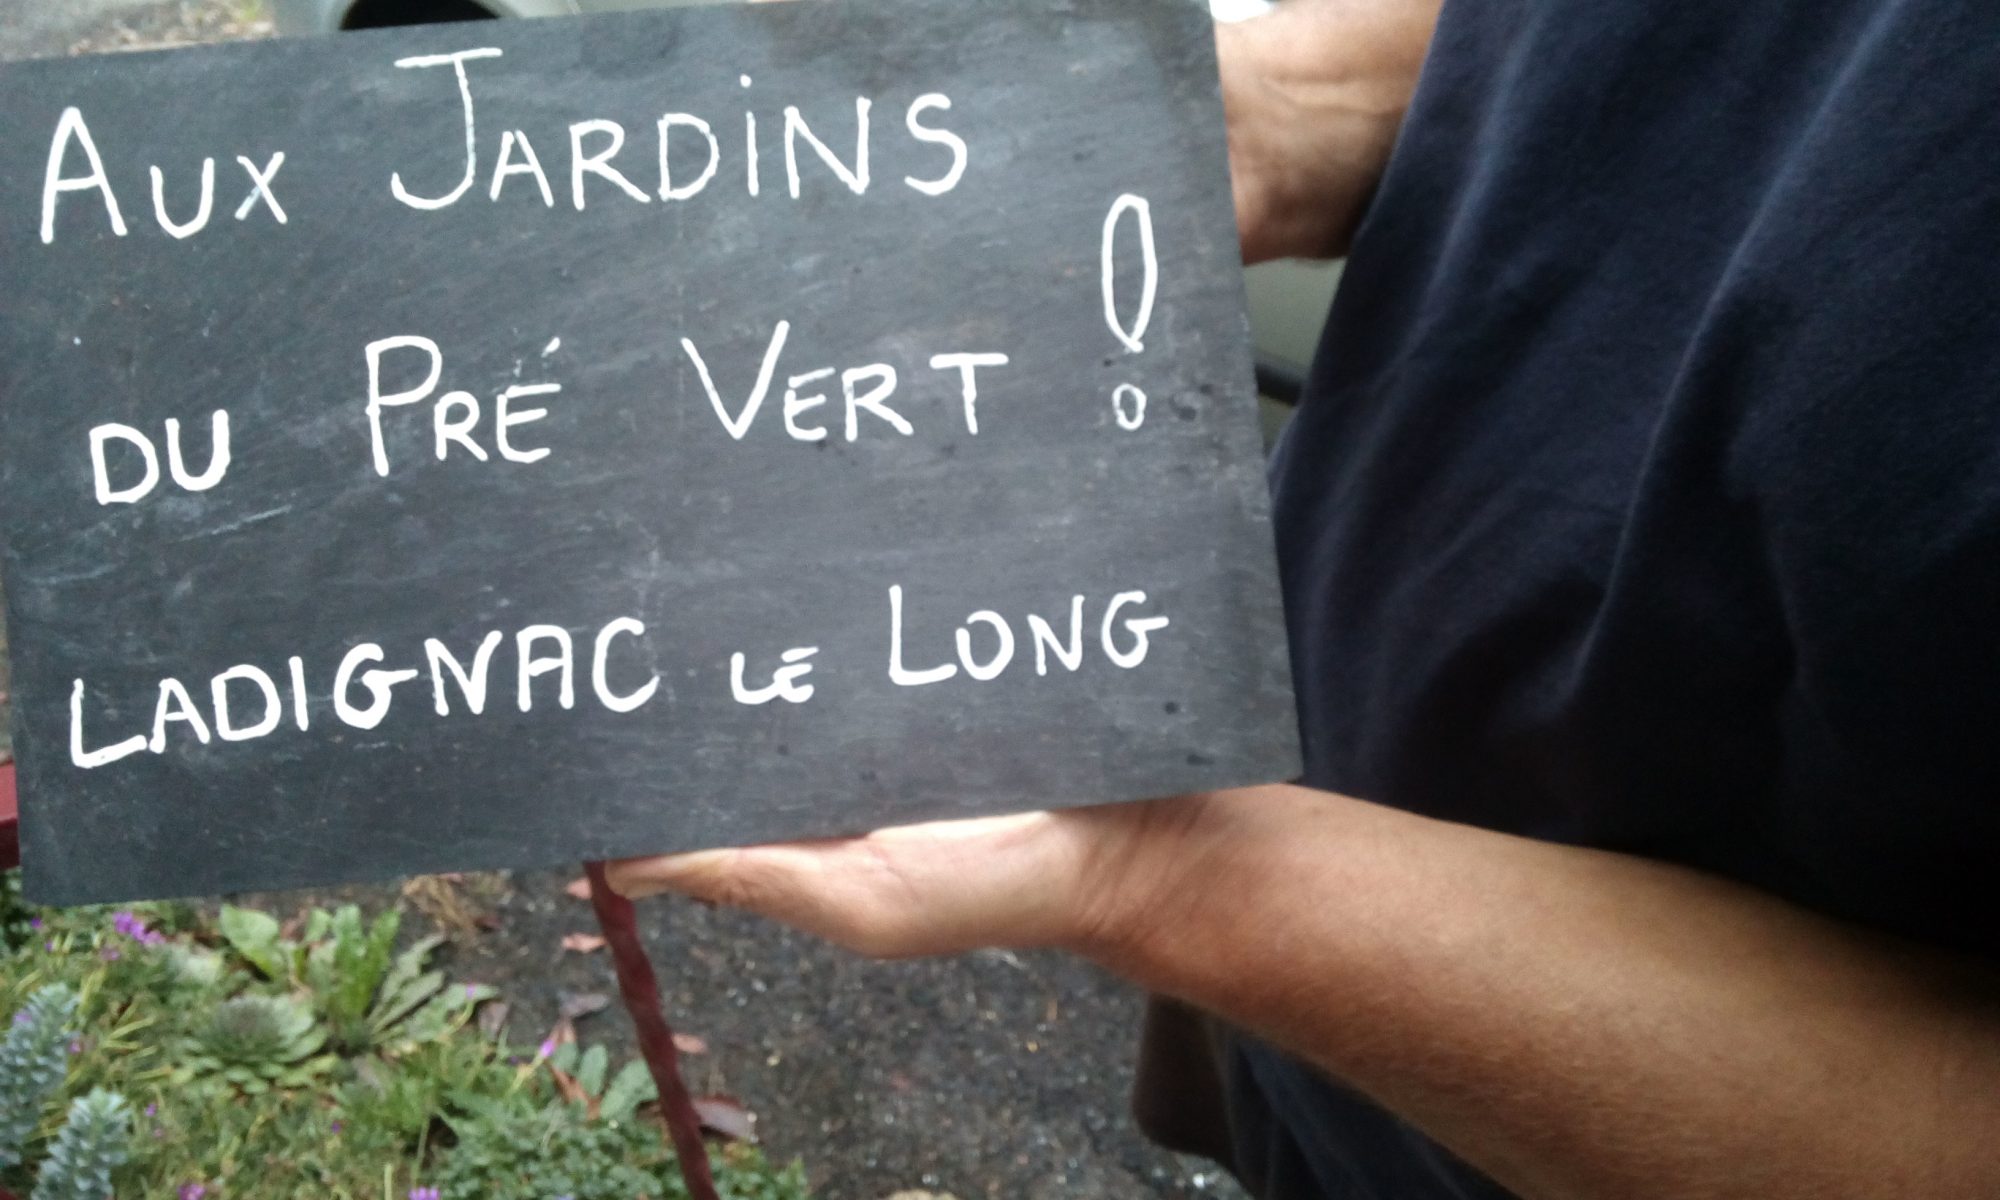 AUX JARDiNS
DU PRÉ VERT !
LADIGNAC LE LONG